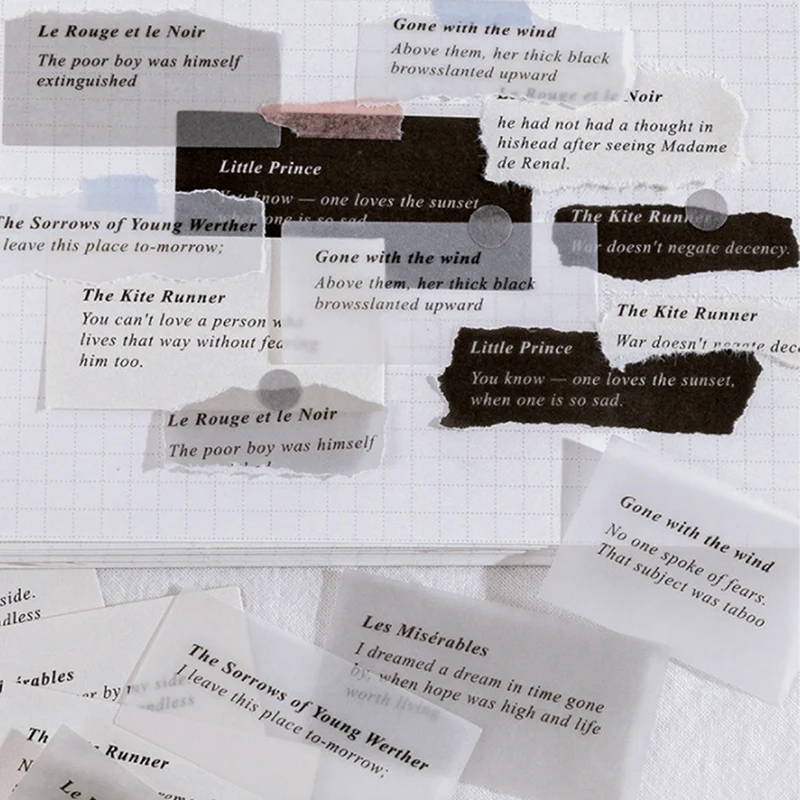 Le Rouge et le Noir
The poor boy was himself
extinguished
Gone with the wind
Above them, her thick black
browsslanted upward
Le Rouge et le Noir
he had not had a thought in
hishead after seeing Madame
de Renal.
Little Prince
You know — one loves the sunset
when one is so sad.
The Sorrows of Young Werther
leave this place to-morrow;
The Kite Runner
War doesn't negate decency.
Gone with the wind
Above them, her thick black
browsslanted upward
The Kite Runner
You can't love a person w
lives that way without fearing
him too.
The Kite Runner
War doesn't negate dece
Little Prince
You know — one loves the sunset,
when one is so sad.
Le Rouge et le Noir
The poor boy was himself
Gone with the wind
No one spoke of fears.
That subject was taboo
side.
dless
Les Misérables
I dreamed a dream in time gone
by, when hope was high and life
worth living
The Sorrows of Young Werther
I leave this place to-morrow;
érables
er by my side
endless
The Runner
N
Le